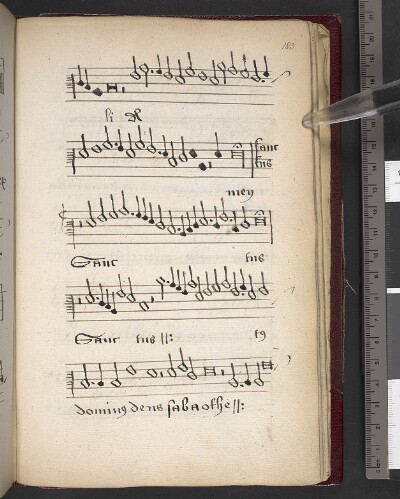 163
li
Sanc
tus
mey
Sanc tus
Sanc tus ||: tꝰ
dominꝰ deus sabaothe ||: